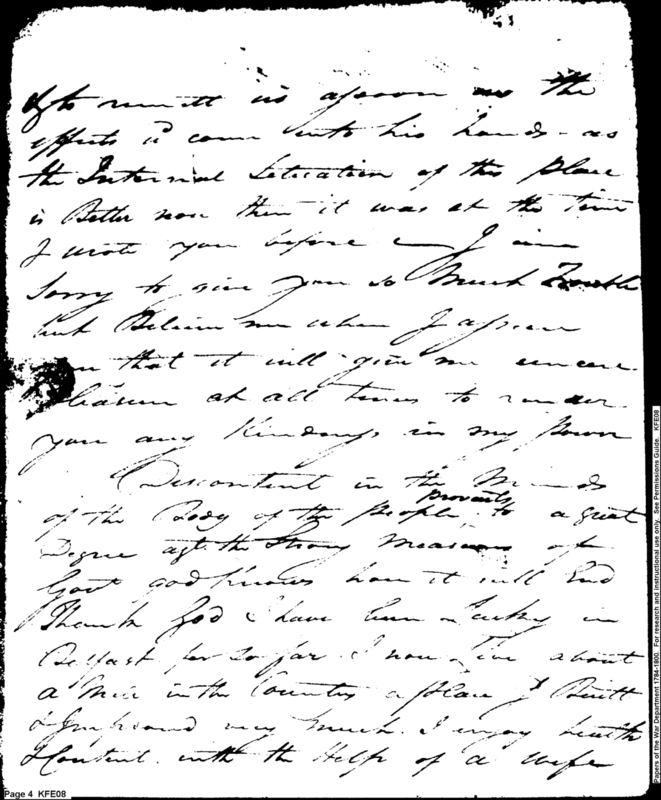 & to remitt us as soon as the
effects d come into his hands - as
the Internal Situation of this place
is Better now then it was at the time
I wrote you before — I am
Sorry to give you so Much Trouble
but Believe me when I assure
you that it will give me sincere
pleasure at all times to render
you any Kindness in my power
Discontent in the Minds
of the Body of the people prevails to a great
Degree agt. the Strong Measures of
Govt god Knows how it will End
Thank God I have been Lucky in
Belfast so far I now Live about
a Mile in the Country a place I Built
& Improved very much. I enjoy health
& Content with the Help of a wife
Page 4 KFE08
Papers of the War Department 1784-1800. For research and instructional use only. See Permissions Guide. KFE08